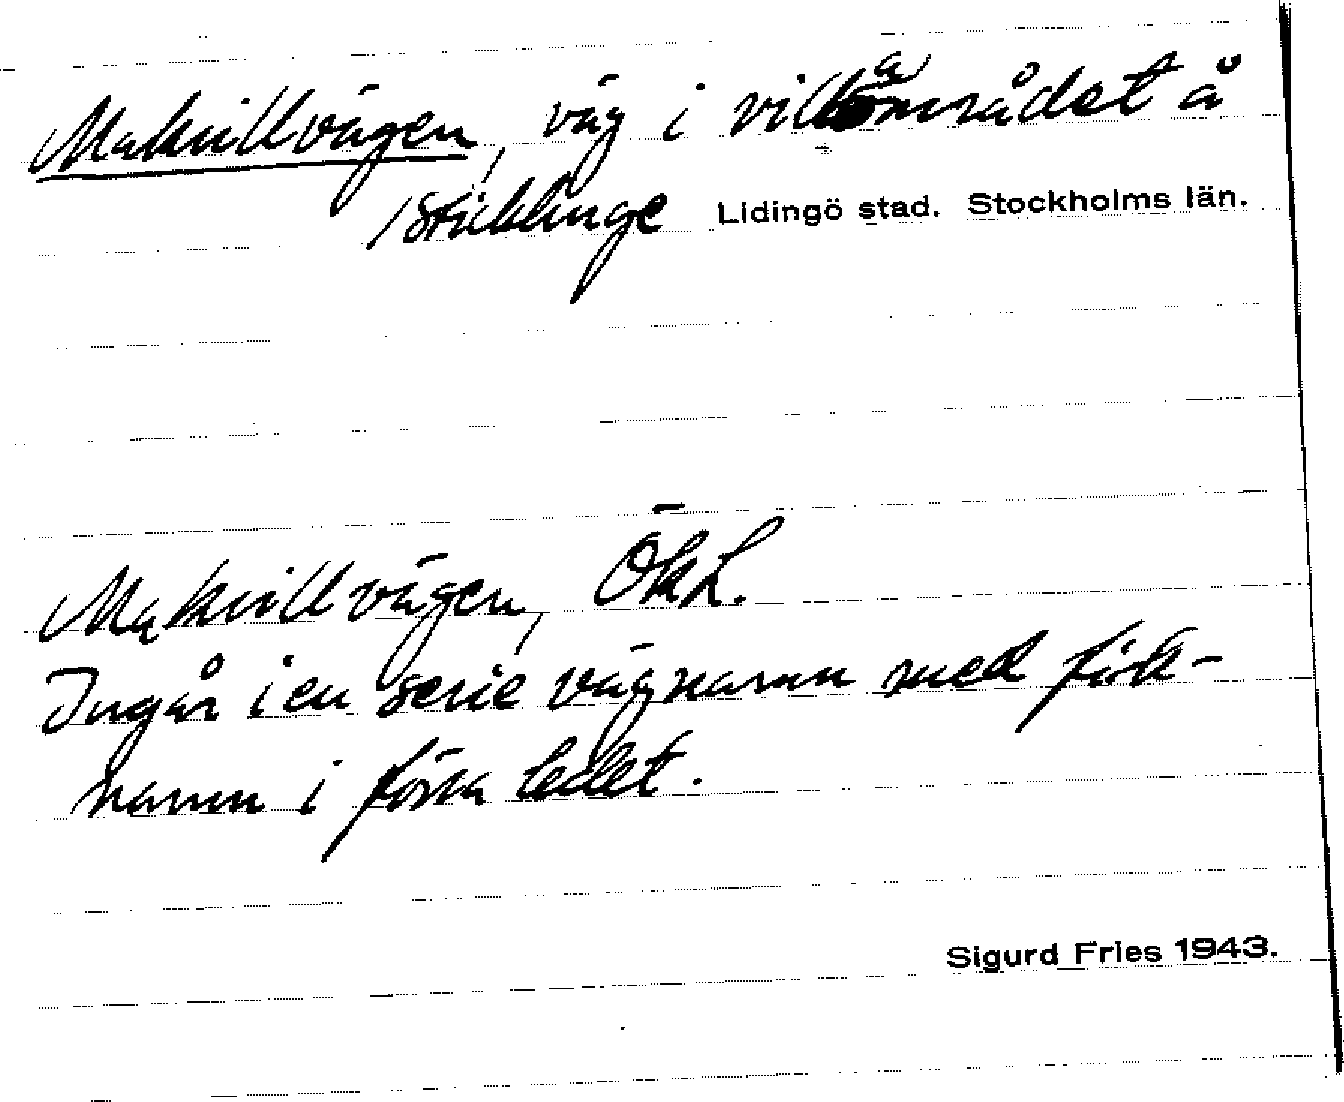 Makrillvägen, väg i villaområdet å
/Sticklinge Lidingö stad. Stockholms län.
Makrillvägen, ÖkL.
Ingår i en serie vägnamn med fisk-
namn i första ledet.
Sigurd Fries 1943.